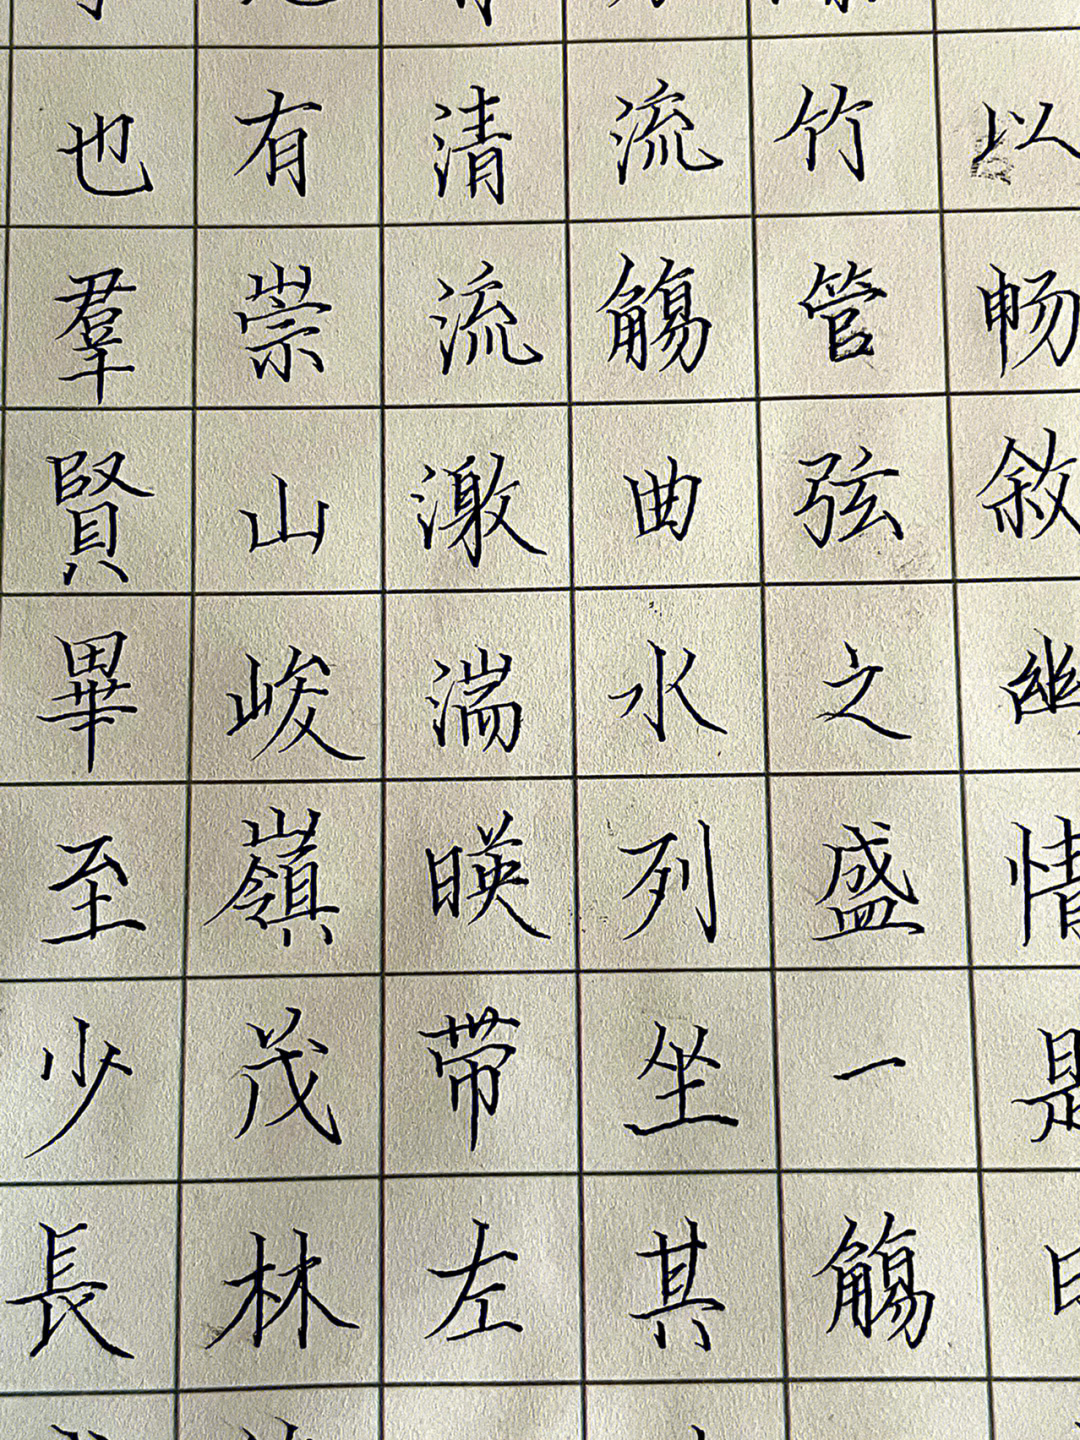 也羣賢畢至少長
有崇山峻嶺茂林
清流激湍暎带左
流觴曲水列坐其
竹管弦之盛一觴
以畅敘幽情是